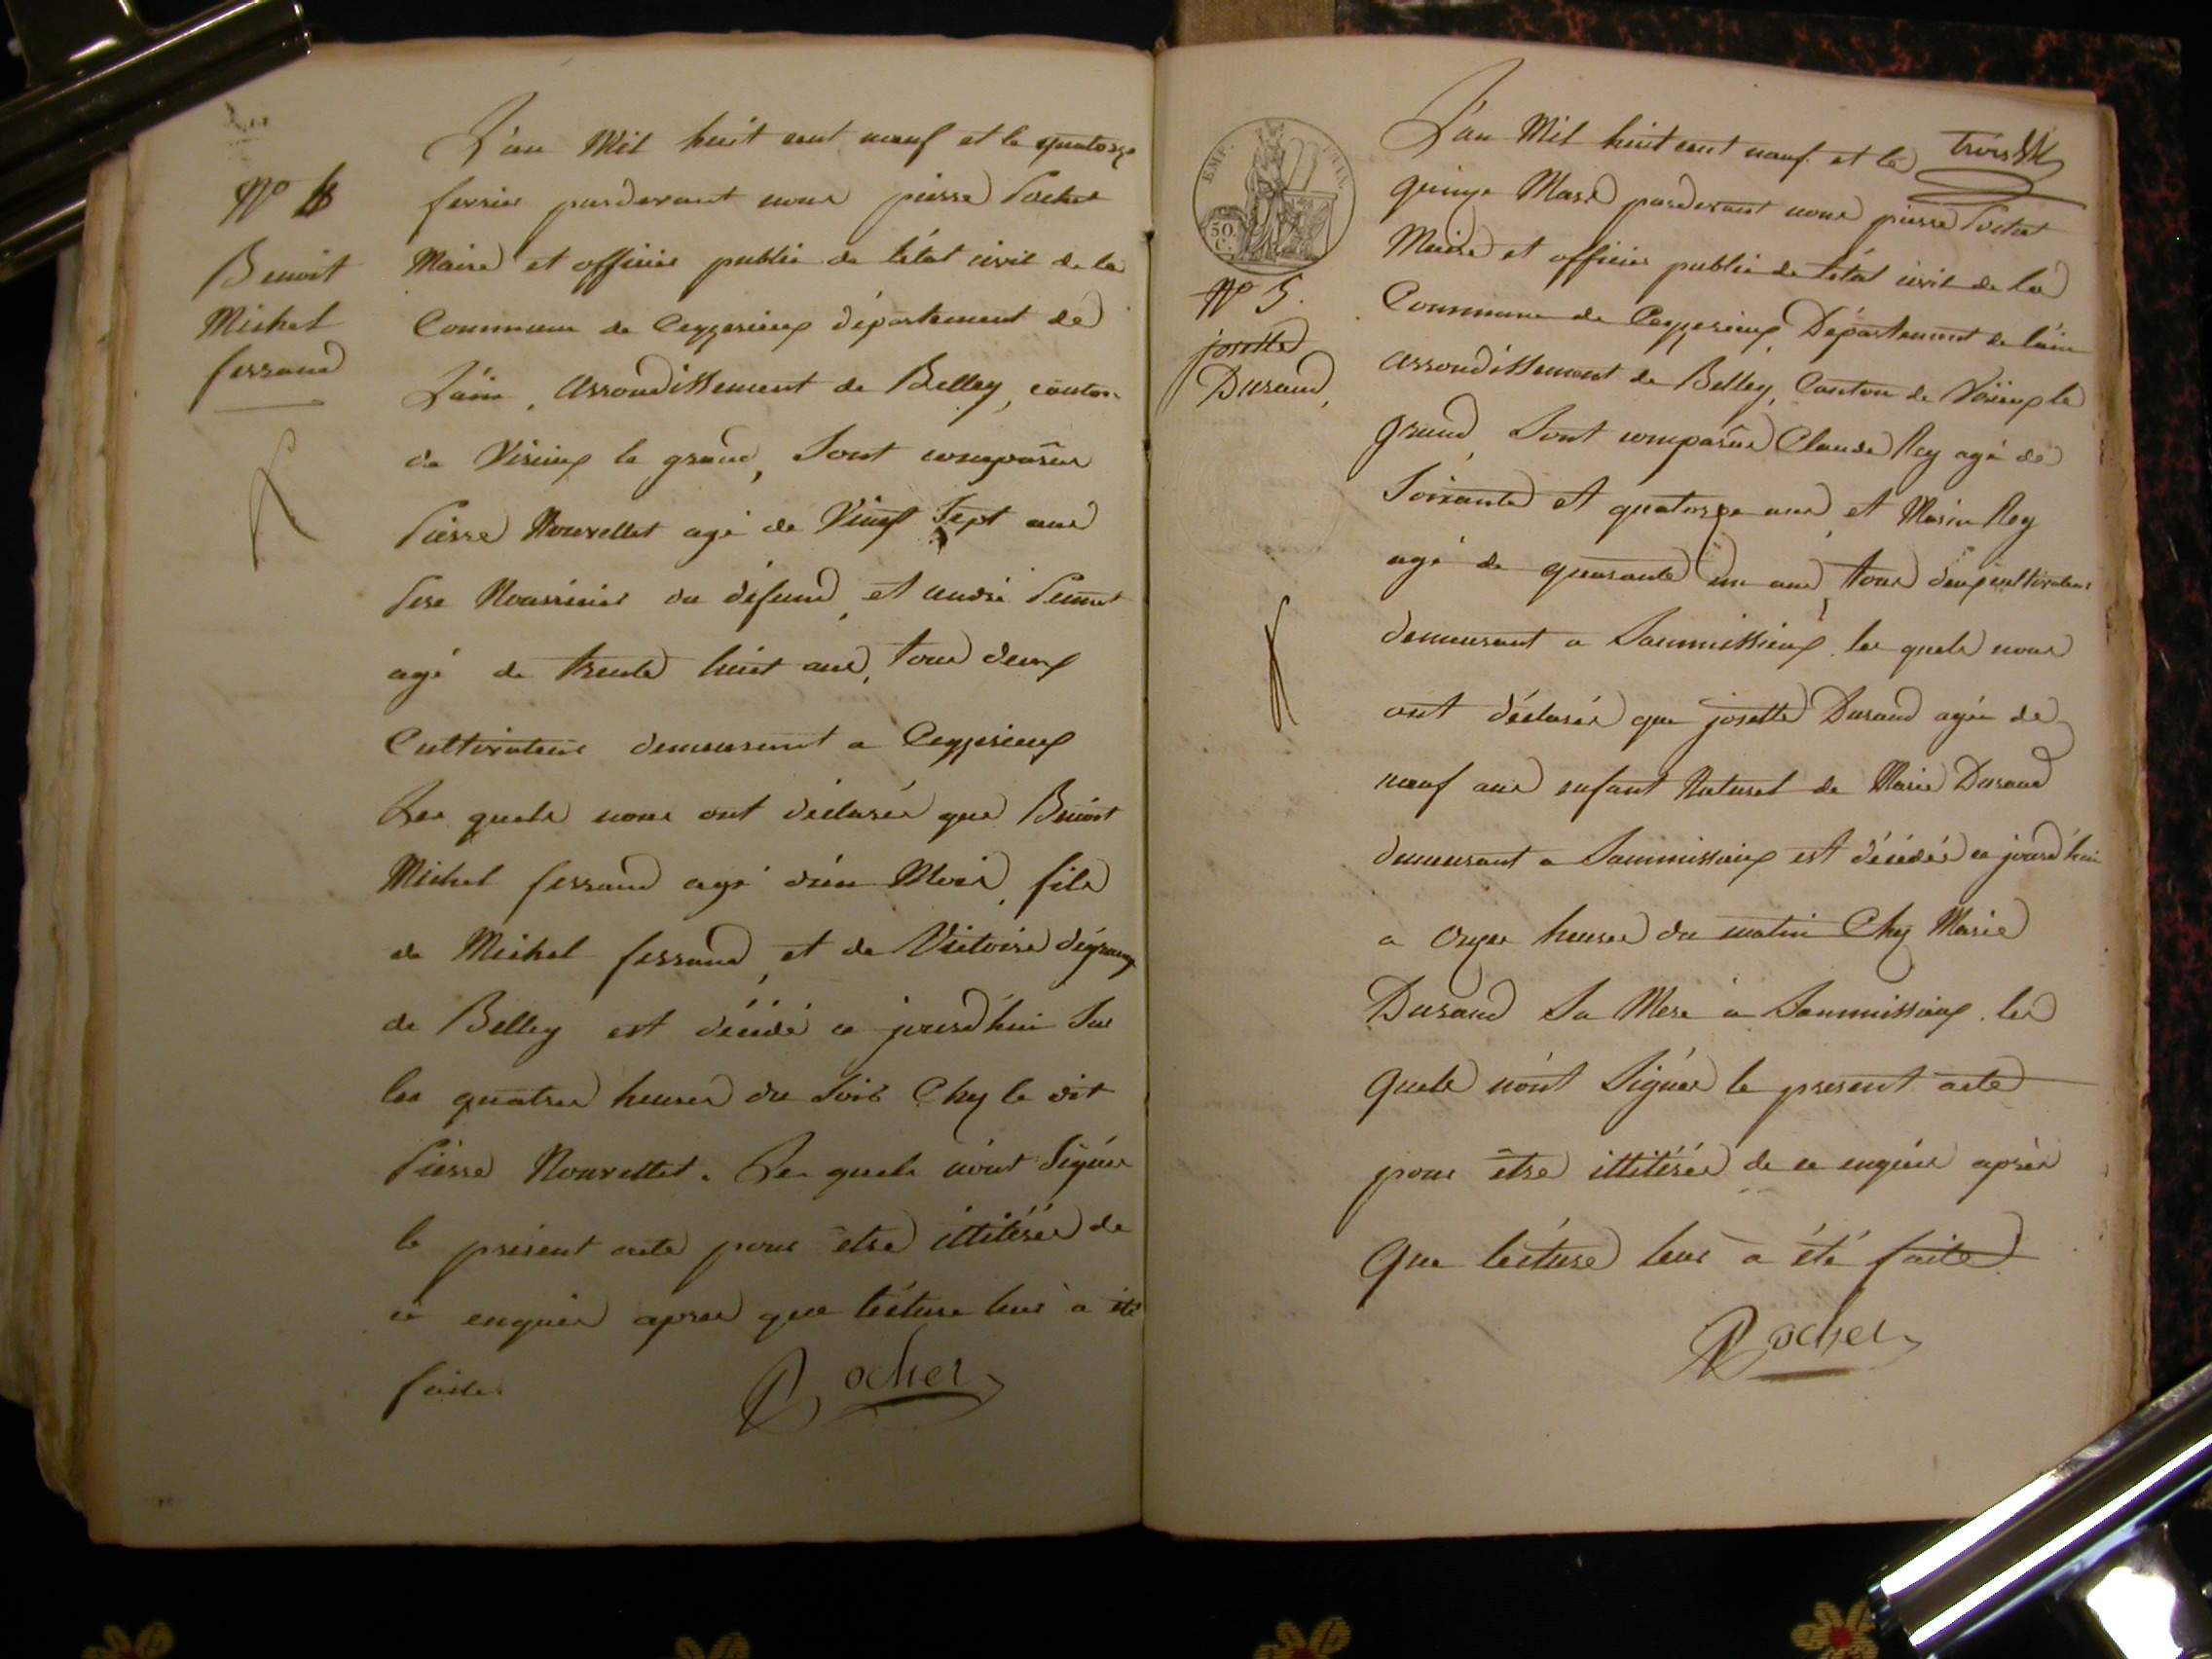 N° 4
Benoit
Michel
ferrand
L'an Mil huit cent neuf et le quatorze
fevrier pardevant nous pierre Rochet
Maire et officier public de l'état civil de la
Commune de Ceyzerieux département de
L'ain, Arrondissement de Belley, canton
de Virieux le grand, Sont comparus
Pierre Nouvellet agé de Vingt Sept ans
Pere Nourricier du défund, et andré
agé de trente huit ans, tous deux
Cultivateurs demeurant a Ceyzerieux
Les quels nous ont déclarés que Benoit
Michel ferrand agé d'un Mois, fils
de Michel ferrand, et de Victoire
de Belley est décédé ce jourd'hui Sur
les quatres heures du Soir Chez le dit
Pierre Nouvellet. Les quels n'ont Signés
le présent acte pour être illitérés de
ce enquis apres que lécture leur à été
faite
Rocher
EMP.
50.
C.
N° 5.
josette
Durand,
trois
L'an Mil huit cent neuf et le
quinze Mars pardevant nous pierre Rochet
Maire et officier public de l'état civil de la
Commune de Ceyzerieux, Département de l'ain
arrondissement de Belley, Canton de Virieux le
grand, Sont comparus Claude Rey agé de
Soixante et quatorze ans, et Marin Rey
agé de quarante un ans, tous deux cultivateurs
demeurant a Sammissieux les quels nous
ont déclarés que josette Durand agée de
neuf ans enfant Naturel de Marie Durand
demeurant a Sammissieux est décédée ce jourd'hui
a onzes heures du matin Chez Marie
Durand Sa Mere à Sammissieux. les
quels n'ont Signés le present acte
pour être illitérés de ce enquis aprés
que lécture leur à été faite
Rocher